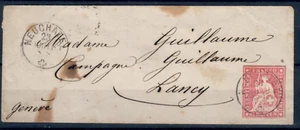 NEUCHA
Madame Guillaume
Campagne Guillaume
Lancy
Genève